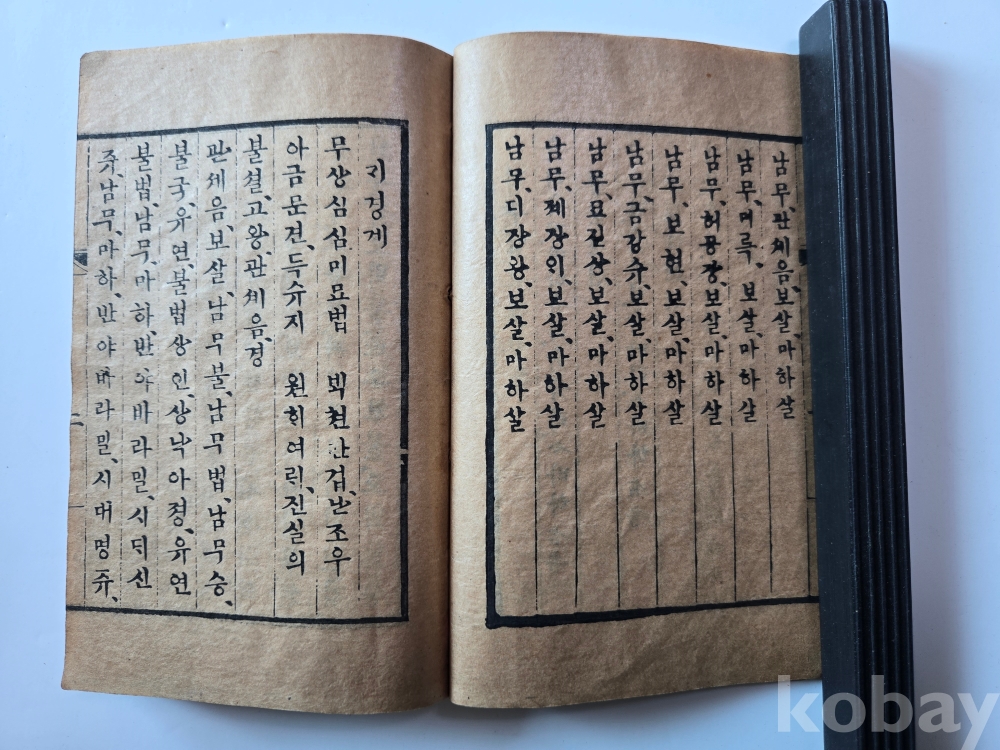 남무、관세음、보살、마하살
남무、미륵、보살、마하살
남무、허공장、보살、마하살
남무、보현、보살、마하살
남무、금강슈、보살、마하살
남무、묘길상、보살、마하살
남무、제장이、보살、마하살
남무、디장왕、보살、마하살
긔경게
무상심심미묘법 백쳔만겁、난조우
아금문견、득슈지 원ᄒᆡ여릭、진실의
불셜、고왕、관세음、경
관세음、보살、남무불、남무법、남무승、
불국、유연、불법상인、상낙아졍、유연
불법、남무、마하、반야바라밀、시대신
쥬、남무、마하、반야바라밀、시대명쥬、
kobay